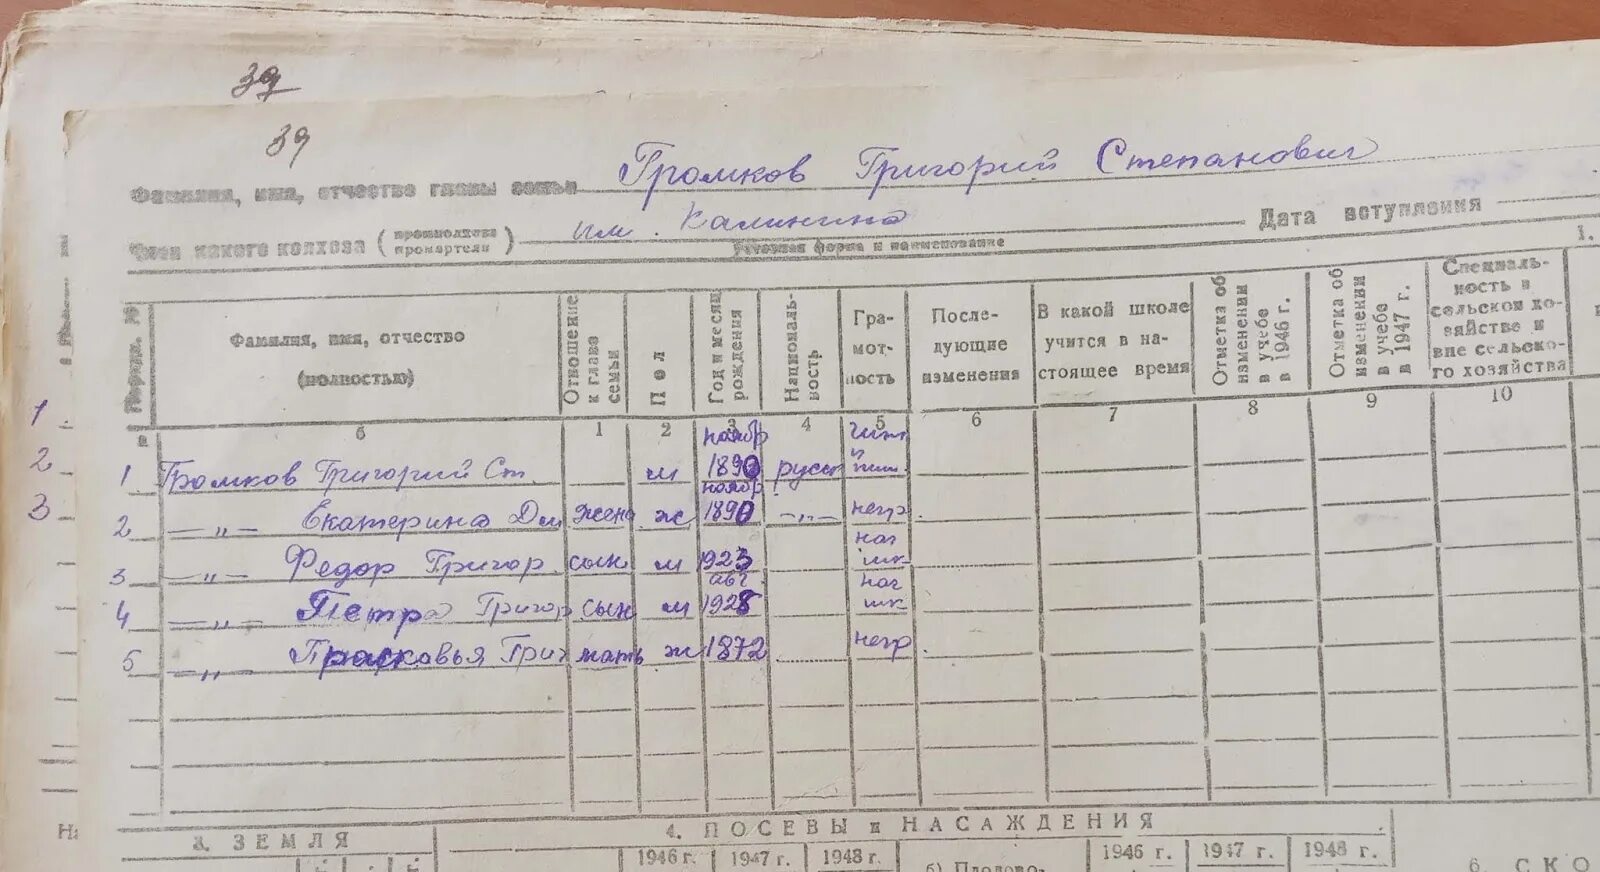 39
39
Фамилия, имя, отчество главы семьи Громков Григорий Степанович
Член какого колхоза (промколхоза промартели) им. Калинина Дата вступления
уставная форма и наименование
1.
Фамилия, имя, отчество (полностью) Отношение к главе семьи Пол Год и месяц рождения Националь-ность Гра-мот-ность После-дующие изменения В какой школе учится в на-стоящее время Отметка об изменении в учебе в 1946 г. Отметка об изменении в учебе в 1947 г. Специаль-ность в сельском хо-зяйстве и вне сельско-го хозяйства
а б 1 2 3 4 5 6 7 8 9 10
1 Громков Григорий Ст. м ноябр 1890 русск
2 —„— Екатерина Дм жена ж ноябр 1890 —„— негр.
3 —„— Федор Григор. сын м 1923 нач шк
4 —„— Петр Григор сын м авг. 1928 нач шк
5 —„— Прасковья Григ мать ж 1872 негр.
1
2
3
3. ЗЕМЛЯ
4. ПОСЕВЫ и НАСАЖДЕНИЯ
1946 г. 1947 г. 1948 г. б) Плодово- 1946 г. 1947 г. 1948 г.
6. СКО